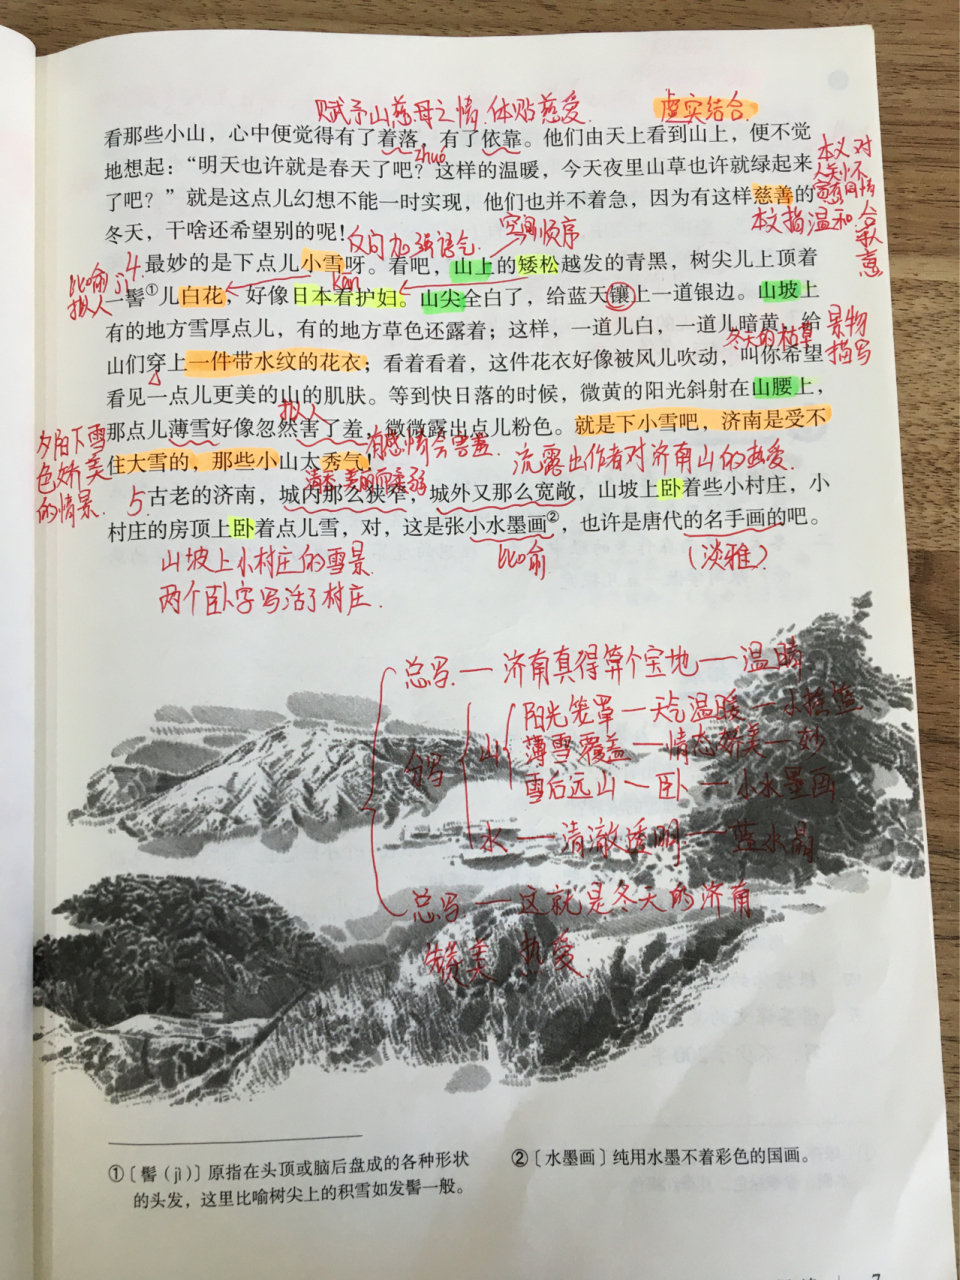 赋予山慈母之情.体贴慈爱.
虚实结合.
看那些小山，心中便觉得有了着落，有了依靠。他们由天上看到山上，便不觉
zhuó
地想起：“明天也许就是春天了吧？这样的温暖，今天夜里山草也许就绿起来
了吧？”就是这点儿幻想不能一时实现，他们也并不着急，因为有这样慈善的
本义对
人关怀
富有同情
本文指温和
合
冬天，干啥还希望别的呢！
反问加强语气.
空间顺序
4.
最妙的是下点儿小雪呀。看吧，山上的矮松越发的青黑，树尖儿上顶着
比喻
拟人
jì
kān
一髻①儿白花，好像日本看护妇。山尖全白了，给蓝天镶上一道银边。山坡上
有的地方雪厚点儿，有的地方草色还露着；这样，一道儿白，一道儿暗黄，给
冬天的枯草
景物
描写
山们穿上一件带水纹的花衣；看着看着，这件花衣好像被风儿吹动，叫你希望
看见一点儿更美的山的肌肤。等到快日落的时候，微黄的阳光斜射在山腰上，
拟人
那点儿薄雪好像忽然害了羞，微微露出点儿粉色。就是下小雪吧，济南是受不
夕阳下雪
色娇美
的情景.
有感情会害羞.
住大雪的，那些小山太秀气！
流露出作者对济南山的热爱.
5.
古老的济南，城内那么狭窄，城外又那么宽敞，山坡上卧着些小村庄，小
村庄的房顶上卧着点儿雪，对，这是张小水墨画②，也许是唐代的名手画的吧。
比喻
（淡雅）
山坡上小村庄的雪景.
两个卧字写活了村庄.
总写.—济南真得算个宝地—温晴
分写
山
阳光笼罩—天气温暖—小摇篮
薄雪覆盖—情态娇美—妙
雪后远山—卧—小水墨画
水—清澈透明—蓝水晶
总写—这就是冬天的济南
赞美 热爱
①〔髻（jì）〕原指在头顶或脑后盘成的各种形状
的头发，这里比喻树尖上的积雪如发髻一般。
②〔水墨画〕纯用水墨不着彩色的国画。
7